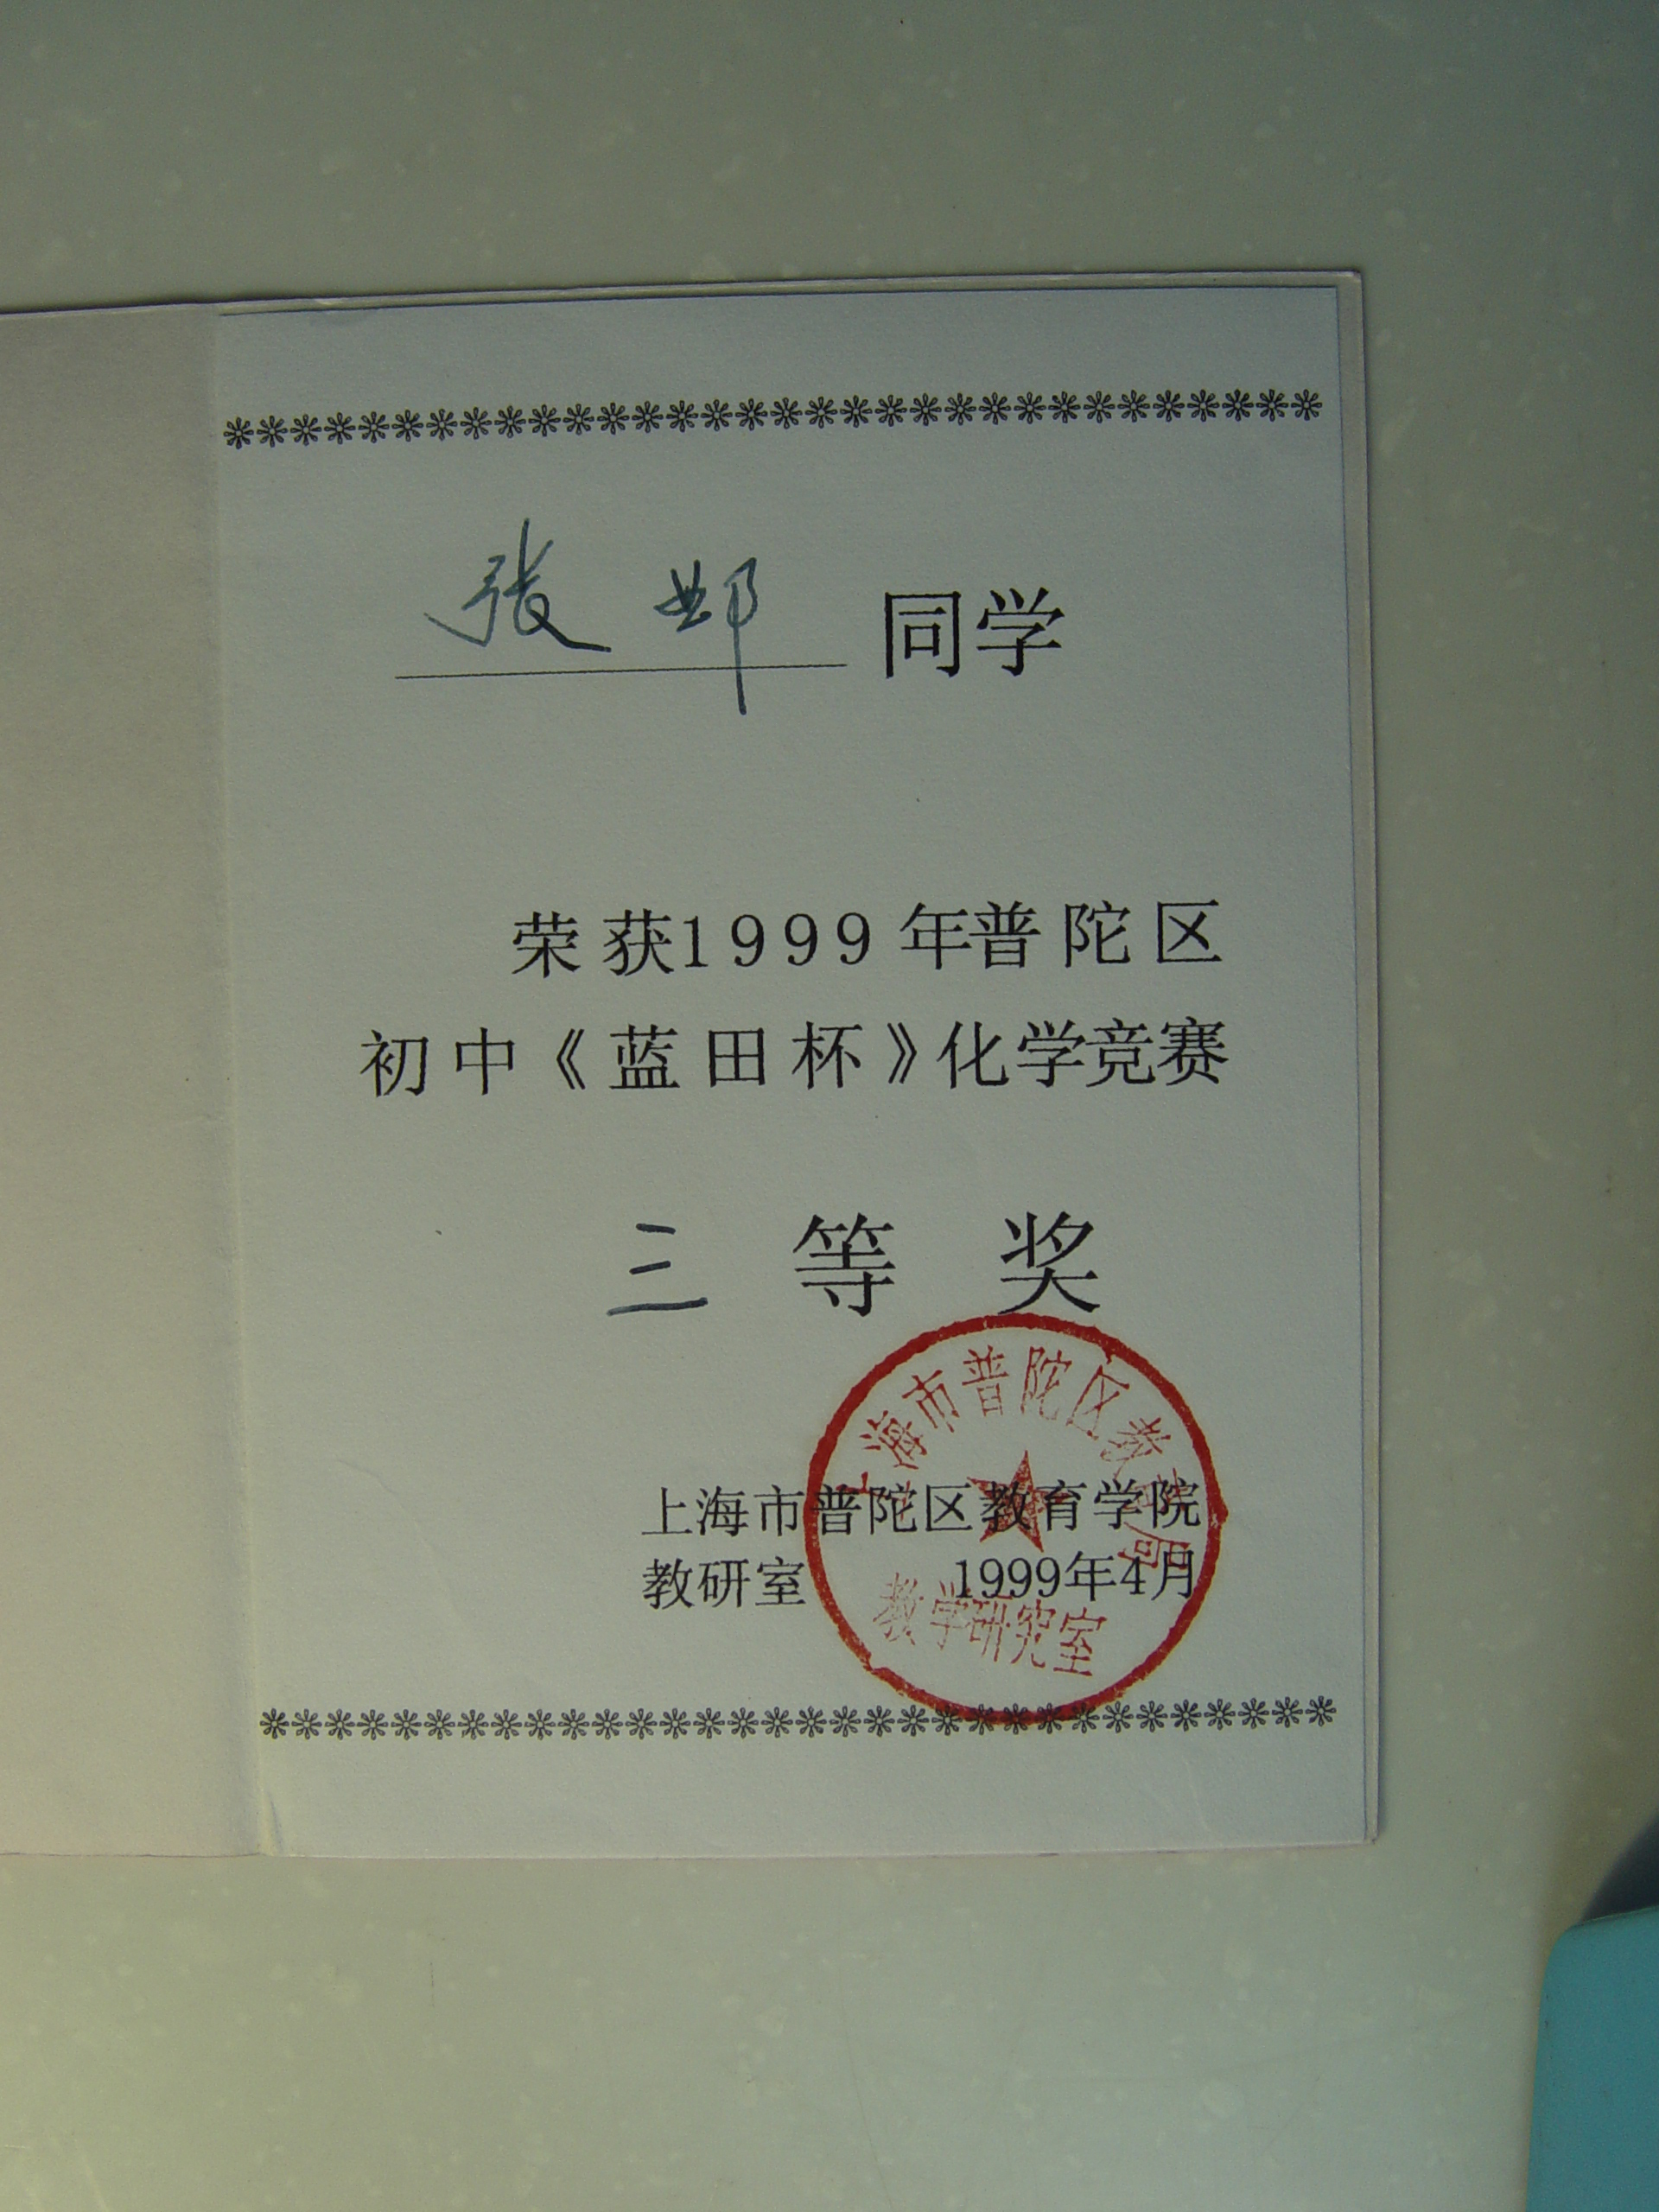 张 邺 同学
荣获1999年普陀区
初中《蓝田杯》化学竞赛
三等奖
上海市普陀区教育学院
教研室 1999年4月
上海市普陀区教育局
教学研究室